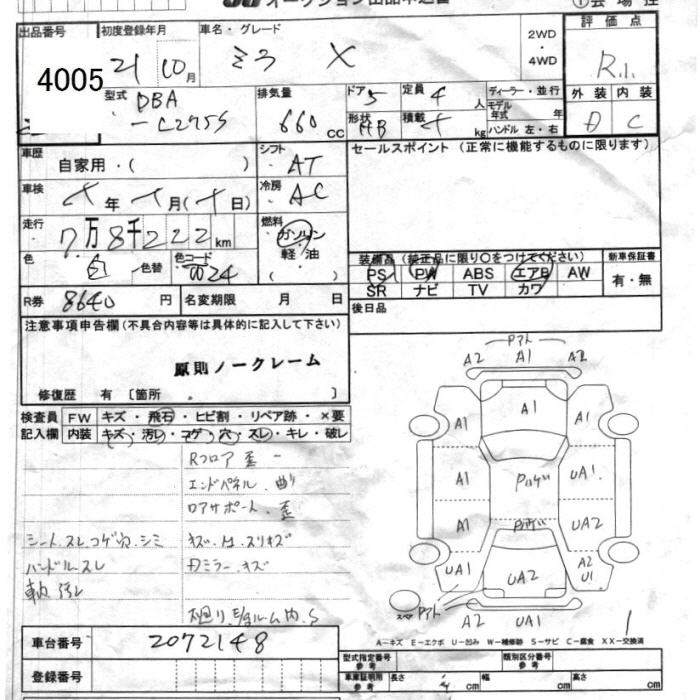 オークション出品申込書
出品番号 初度登録年月 車名・グレード 2WD・4WD 評価点
4005 21 10月 ミラ X R.1.
型式 DBA - L275S 排気量 660 cc ドア 5 定員 4 人 ディーラー・並行 外装 内装
形状 HB 積載 kg モデル年式 年式 ハンドル 左・右 D C
車歴 自家用・( ) シフト AT セールスポイント (正常に機能するものに限ります)
車検 年 月( 日) 冷房 AC
走行 7万8千222km 燃料 ガソリン 軽・油 ( )
色 白 色替 色コード W24
装備品 (純正品に限り○をつけてください) 新車保証書
PS PW ABS エアB AW 有・無
SR ナビ TV カワ
R券 8640 円 名変期限 月 日 後日品
注意事項申告欄(不具合内容等は具体的に記入して下さい)
原則ノークレーム
修復歴 有 [箇所 . ]
A2 A1 A2
検査員 FW キズ・飛石・ヒビ割・リペア跡・×要
記入欄 内装 キズ・汚レ・コゲ・穴・スレ・キレ・破レ
A1 A1 A1
Rフロア 歪
エンドパネル 曲り
A1 UA1.
ロアサポート. 歪
A1 UA2
シート.スレコゲ穴.シミ
ハンドル.スレ
UA1 UA2 A2 U1
A2 UA1 1
A−キズ E−エクボ U−凹み W−補修跡 S−サビ C−腐食 XX−交換済
車台番号 2072148
型式指定番号 参考 類別区分番号 参考
登録番号 車庫証明用 参考 長さ cm 幅 cm 高さ cm